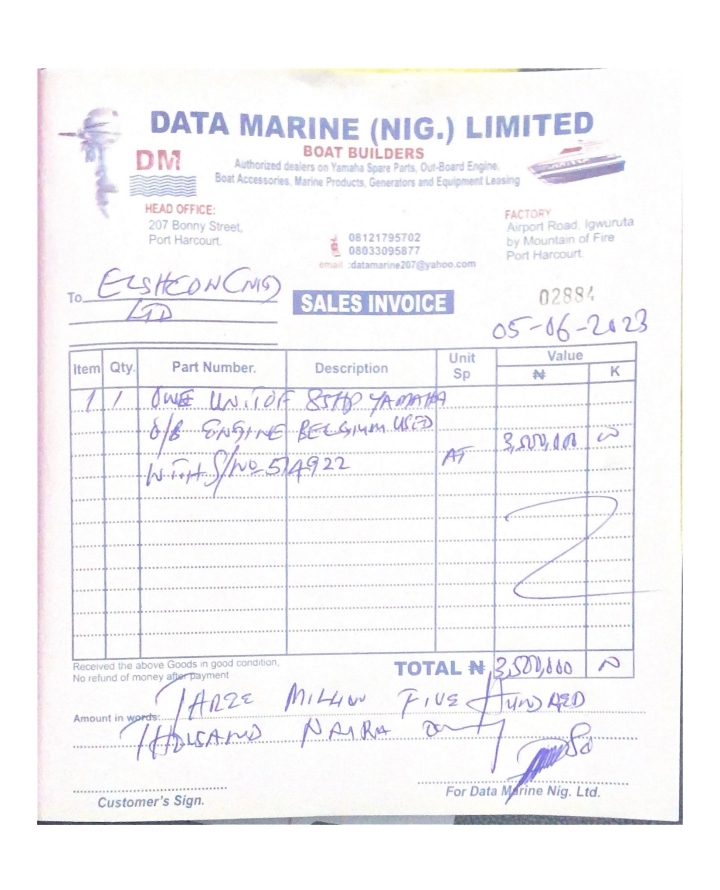 DATA MARINE (NIG.) LIMITED
DM
BOAT BUILDERS
Authorized dealers on Yamaha Spare Parts, Out-Board Engine,
Boat Accessories, Marine Products, Generators and Equipment Leasing
HEAD OFFICE:
207 Bonny Street,
Port Harcourt.
08121795702
08033095877
email :datamarine207@yahoo.com
FACTORY
Airport Road, Igwuruta
by Mountain of Fire
Port Harcourt.
To ELSHCON (NIG)
LTD
SALES INVOICE
02884
05-06-2023
Item Qty. Part Number. Description Unit Sp Value
₦ K
1 1 ONE UNIT OF 85HP YAMAHA
O/B ENGINE BELGIUM USED
WITH S/NO 514922 AT 3,500,000
Received the above Goods in good condition,
No refund of money after payment
TOTAL ₦ 3,500,000
Amount in words: THREE MILLION FIVE HUNDRED
THOUSAND NAIRA ONLY
Customer's Sign.
For Data Marine Nig. Ltd.